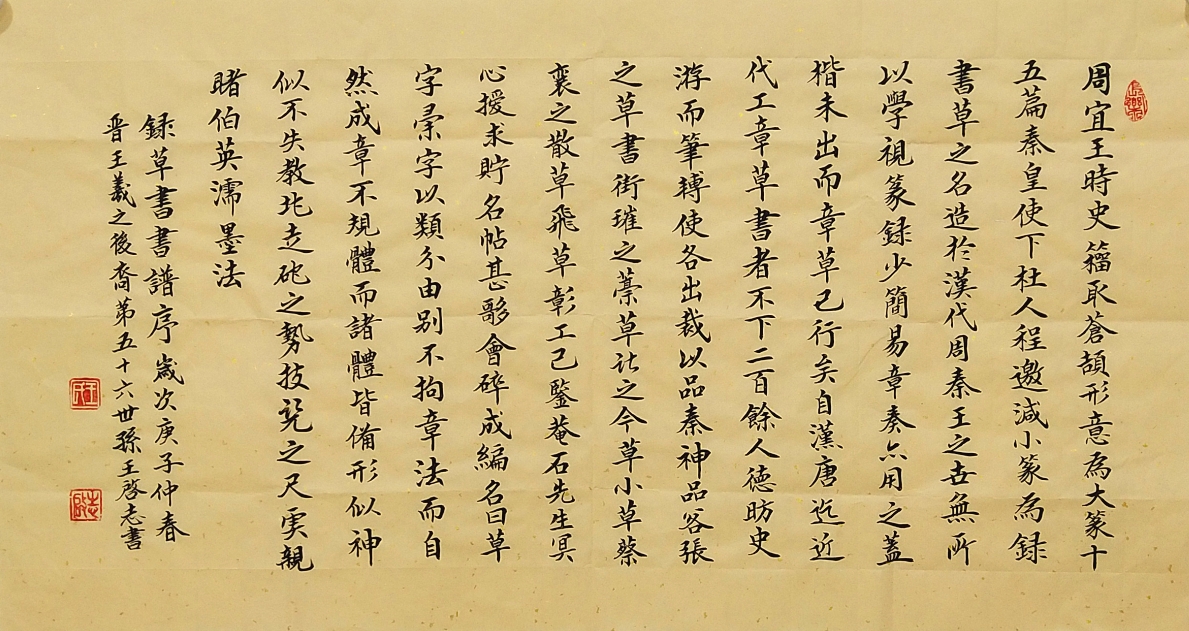 周宜王時史籀取蒼頡形意為大篆十
五篇秦皇使下杜人程邈減小篆為録
書草之名造於漢代周秦王之世無所
以學視篆録少簡易章奏亦用之蓋
楷未出而章草已行矣自漢唐迄近
代工章草書者不下二百餘人德昉史
游而筆搏使各出裁以品秦神品咎張
之草書街璀之藁草比之今草小草蔡
襄之散草飛草彰工已鑒菴石先生冥
心援求貯名帖甚夥會碎成編名曰草
字彙字以類分由别不拘章法而自
然成章不規體而諸體皆備形似神
似不失教北走砣之勢技究之尺雲親
睹伯英濡墨法
録草書書譜序歲次庚子仲春
晋王羲之後裔第五十六世孫王啓志書